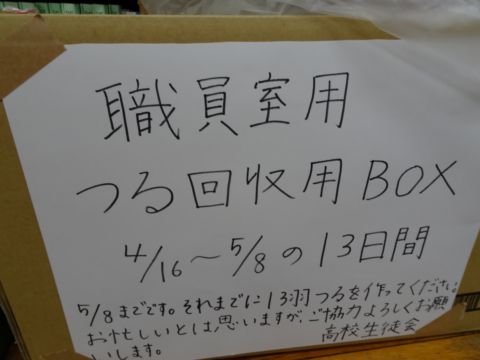 職員室用
つる回収用BOX
4/16～5/8の13日間
5/8までです。それまでに13羽つるを作ってください。
お忙しいとは思いますが、ご協力よろしくお願
いします。
高校生徒会